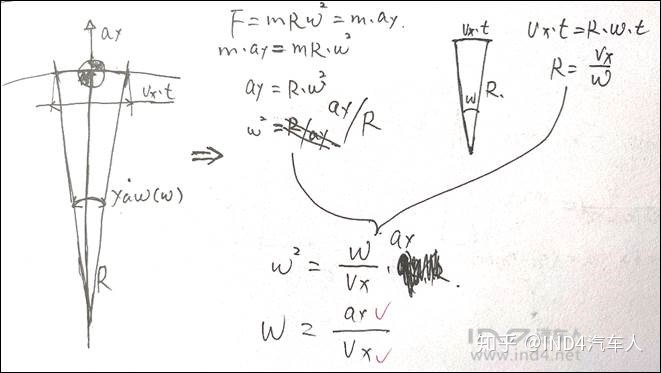 ay
Vx·t
yaw(w)
R
F=mRw²=m·ay.
m·ay=mR·w²
ay=R·w²
w²=ay/R
⇒
Vx·t
w
R.
Vx·t=R·w·t
R=Vx/w
w²=w/Vx·ay
w=ay✓/Vx✓
知乎 @IND4汽车人
IND4汽车人
www.ind4.net